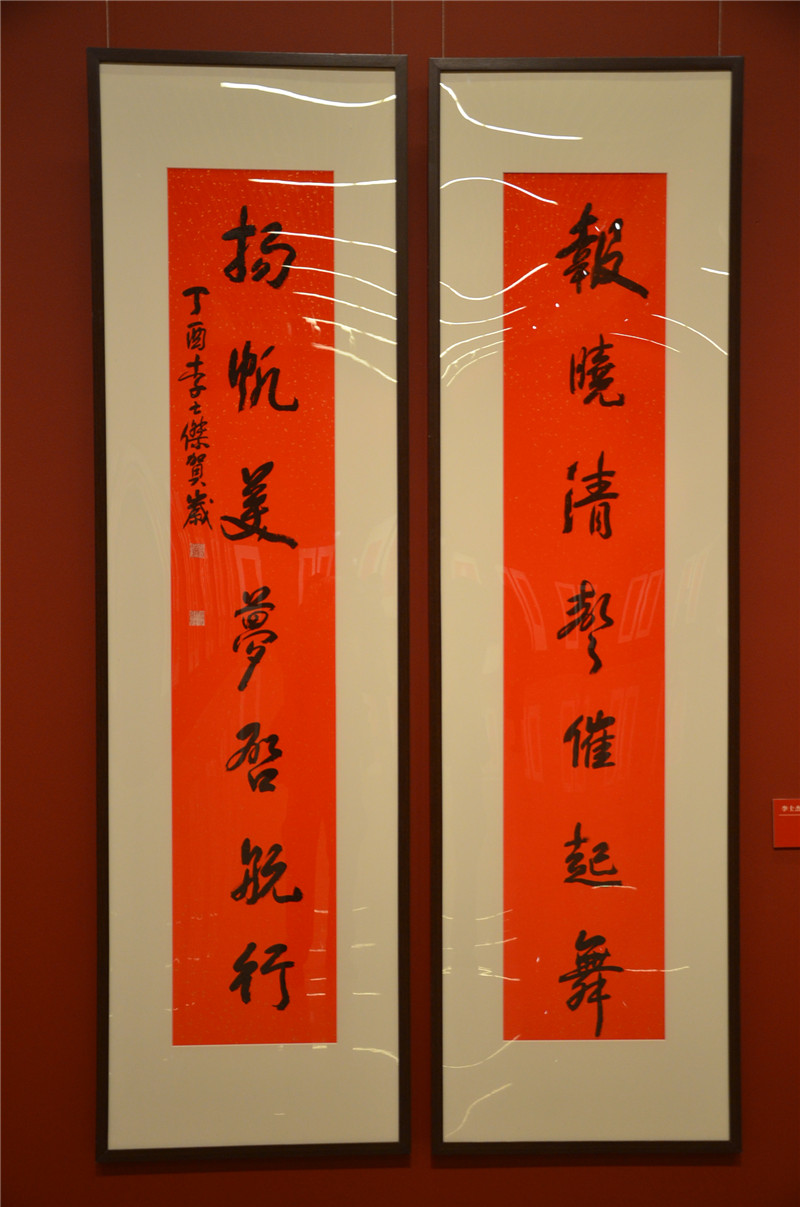 報曉清聲催起舞
揚帆美夢啓航行
丁酉李士傑賀歲
李士